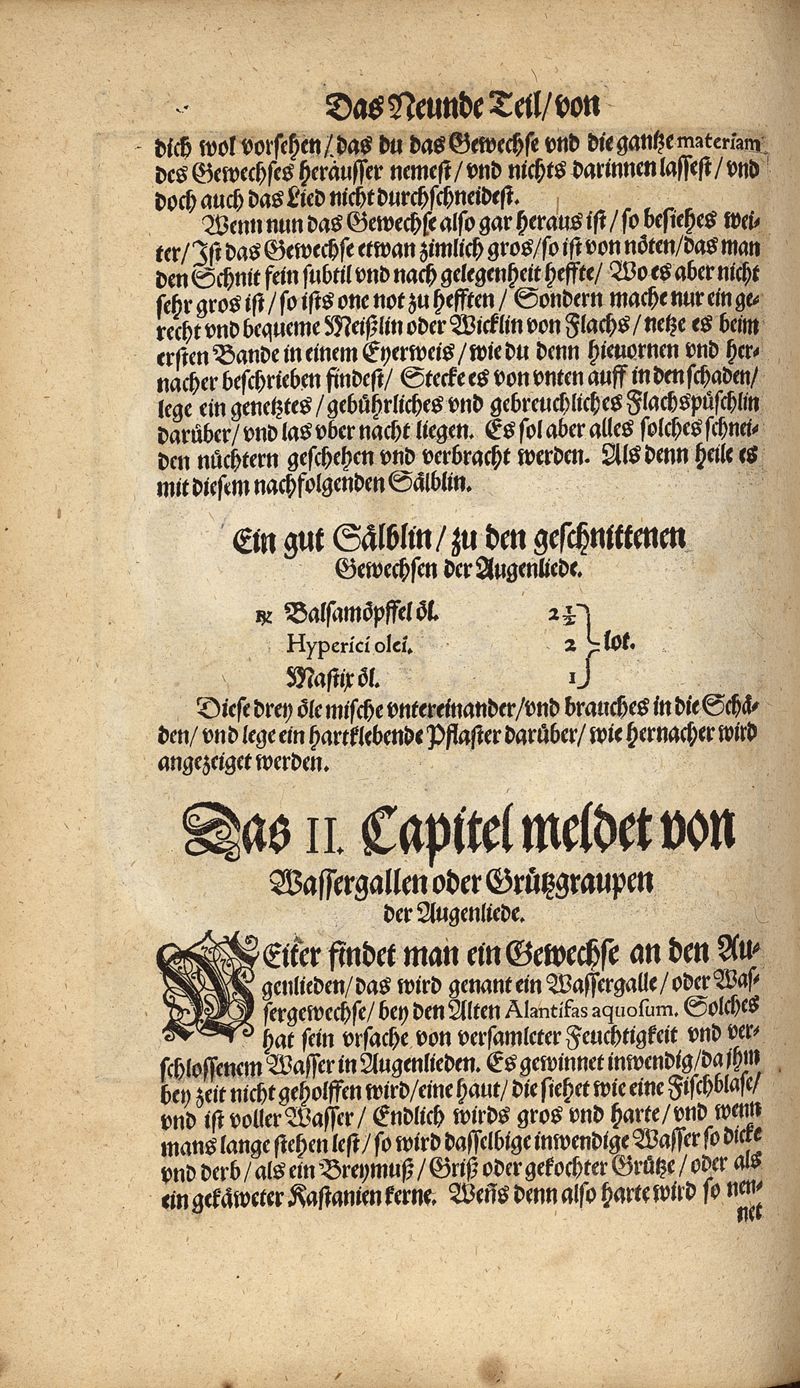 Das Neunde Teil/von
dich wol vorsehen/ das du das Gewechse vnd die gantze materiam
des Gewechses heräusser nemest/ vnd nichts darinnen lassest/ vnd
doch auch das Lied nicht durchschneidest.
Wenn nun das Gewechse also gar heraus ist/ so besiehes wei-
ter/ Ist das Gewechse etwan zimlich gros/so ist von nöten/das man
den Schnit fein subtil vnd nach gelegenheit heffte/ Wo es aber nicht
sehr gros ist/ so ists one not zu hefften/ Sondern mache nur ein ge-
recht vnd bequeme Meißlin oder Wicklin von Flachs/ netze es beim
ersten Bande in einem Eyerweis/ wie du denn hieuornen vnd her-
nacher beschrieben findest/ Stecke es von vnten auff in den schaden/
lege ein genetztes/ gebührliches vnd gebreuchliches Flachspüschlin
darüber/ vnd las vber nacht liegen. Es sol aber alles solches schnei-
den nüchtern geschehen vnd verbracht werden. Als denn heile es
mit diesem nachfolgenden Sälblin.
Ein gut Sälblin/ zu den geschnittenen
Gewechsen der Augenliede.
℞ Balsamöpffel öl. 2½
Hyperici olei. 2 lot.
Mastix öl. 1
Diese drey öle mische vntereinander/vnd brauches in die Schä-
den/ vnd lege ein hartklebende Pflaster darüber/ wie hernacher wird
angezeiget werden.
Das II. Capitel meldet von
Wassergallen oder Grützgraupen
der Augenliede.
WEiter findet man ein Gewechse an den Au-
genlieden/das wird genant ein Wassergalle/ oder Was-
sergewechse/ bey den Alten Alantifas aquosum. Solches
hat sein vrsache von versamleter Feuchtigkeit vnd ver-
schlossenem Wasser in Augenlieden. Es gewinnet inwendig/da jhm
bey zeit nicht geholffen wird/eine haut/ die siehet wie eine Fischblase/
vnd ist voller Wasser/ Endlich wirds gros vnd harte/ vnd wenn
mans lange stehen lest/ so wird dasselbige inwendige Wasser so dicke
vnd derb/ als ein Breymuß/ Griß oder gekochter Grütze/ oder als
ein gekäweter Kastanien kerne. Weñs denn also harte wird so nen-
net